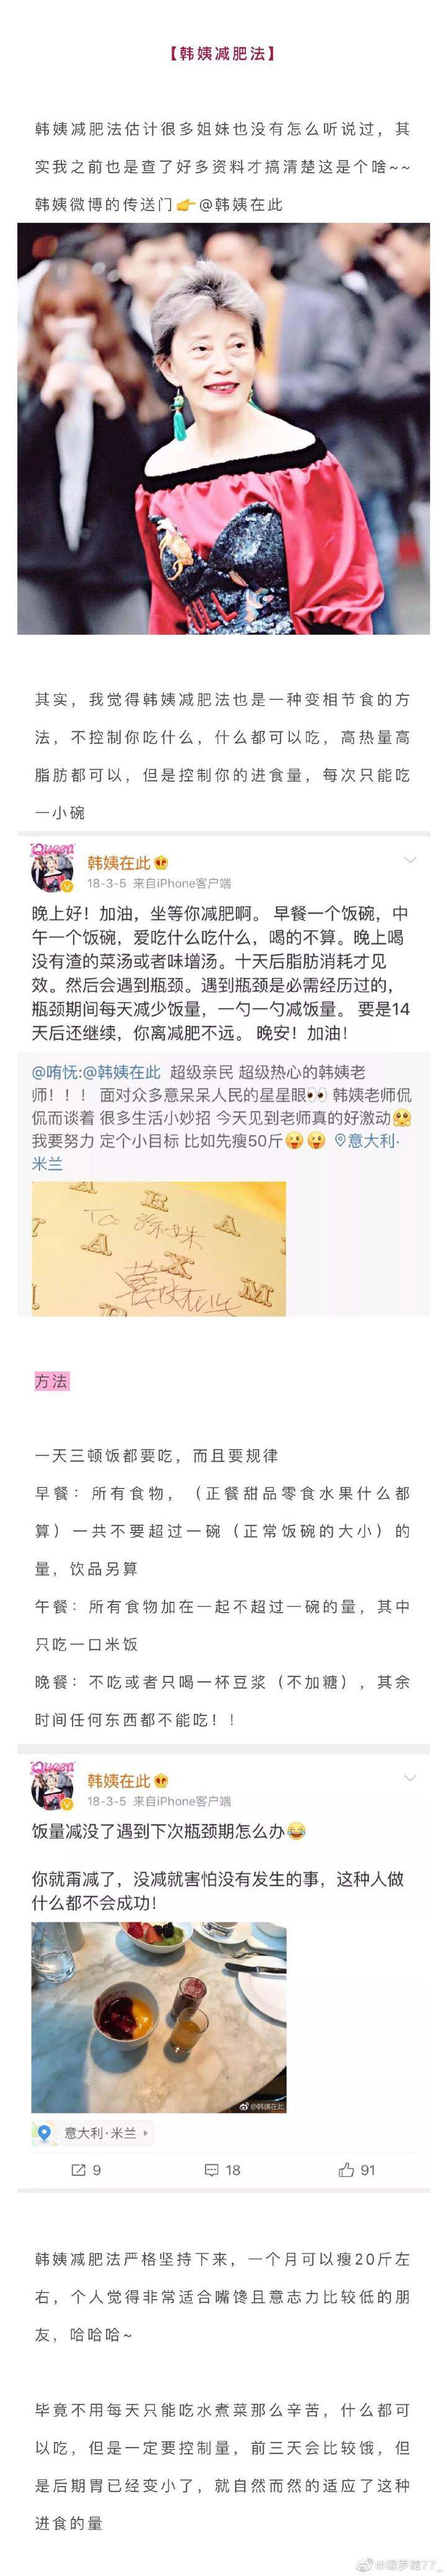 【韩姨减肥法】
韩姨减肥法估计很多姐妹也没有怎么听说过，其
实我之前也是查了好多资料才搞清楚这是个啥~~
韩姨微博的传送门👉@韩姨在此
其实，我觉得韩姨减肥法也是一种变相节食的方
法，不控制你吃什么，什么都可以吃，高热量高
脂肪都可以，但是控制你的进食量，每次只能吃
一小碗
Queen
韩姨在此
18-3-5 来自iPhone客户端
晚上好！加油，坐等你减肥啊。 早餐一个饭碗，中
午一个饭碗，爱吃什么吃什么，喝的不算。晚上喝
没有渣的菜汤或者味增汤。十天后脂肪消耗才见
效。然后会遇到瓶颈。遇到瓶颈是必需经历过的，
瓶颈期间每天减少饭量，一勺一勺减饭量。 要是14
天后还继续，你离减肥不远。 晚安！加油！
@哊怃:@韩姨在此 超级亲民 超级热心的韩姨老
师！！！ 面对众多意呆呆人民的星星眼👀 韩姨老师侃
侃而谈着 很多生活小妙招 今天见到老师真的好激动🥺
我要努力 定个小目标 比如先瘦50斤😜😜 意大利·
米兰
TO:
方法
一天三顿饭都要吃，而且要规律
早餐：所有食物，（正餐甜品零食水果什么都
算）一共不要超过一碗（正常饭碗的大小）的
量，饮品另算
午餐：所有食物加在一起不超过一碗的量，其中
只吃一口米饭
晚餐：不吃或者只喝一杯豆浆（不加糖），其余
时间任何东西都不能吃！！
Queen
韩姨在此
18-3-5 来自iPhone客户端
饭量减没了遇到下次瓶颈期怎么办😂
你就甭减了，没减就害怕没有发生的事，这种人做
什么都不会成功！
@韩姨在此
意大利·米兰
9 18 91
韩姨减肥法严格坚持下来，一个月可以瘦20斤左
右，个人觉得非常适合嘴馋且意志力比较低的朋
友，哈哈哈~
毕竟不用每天只能吃水煮菜那么辛苦，什么都可
以吃，但是一定要控制量，前三天会比较饿，但
是后期胃已经变小了，就自然而然的适应了这种
进食的量